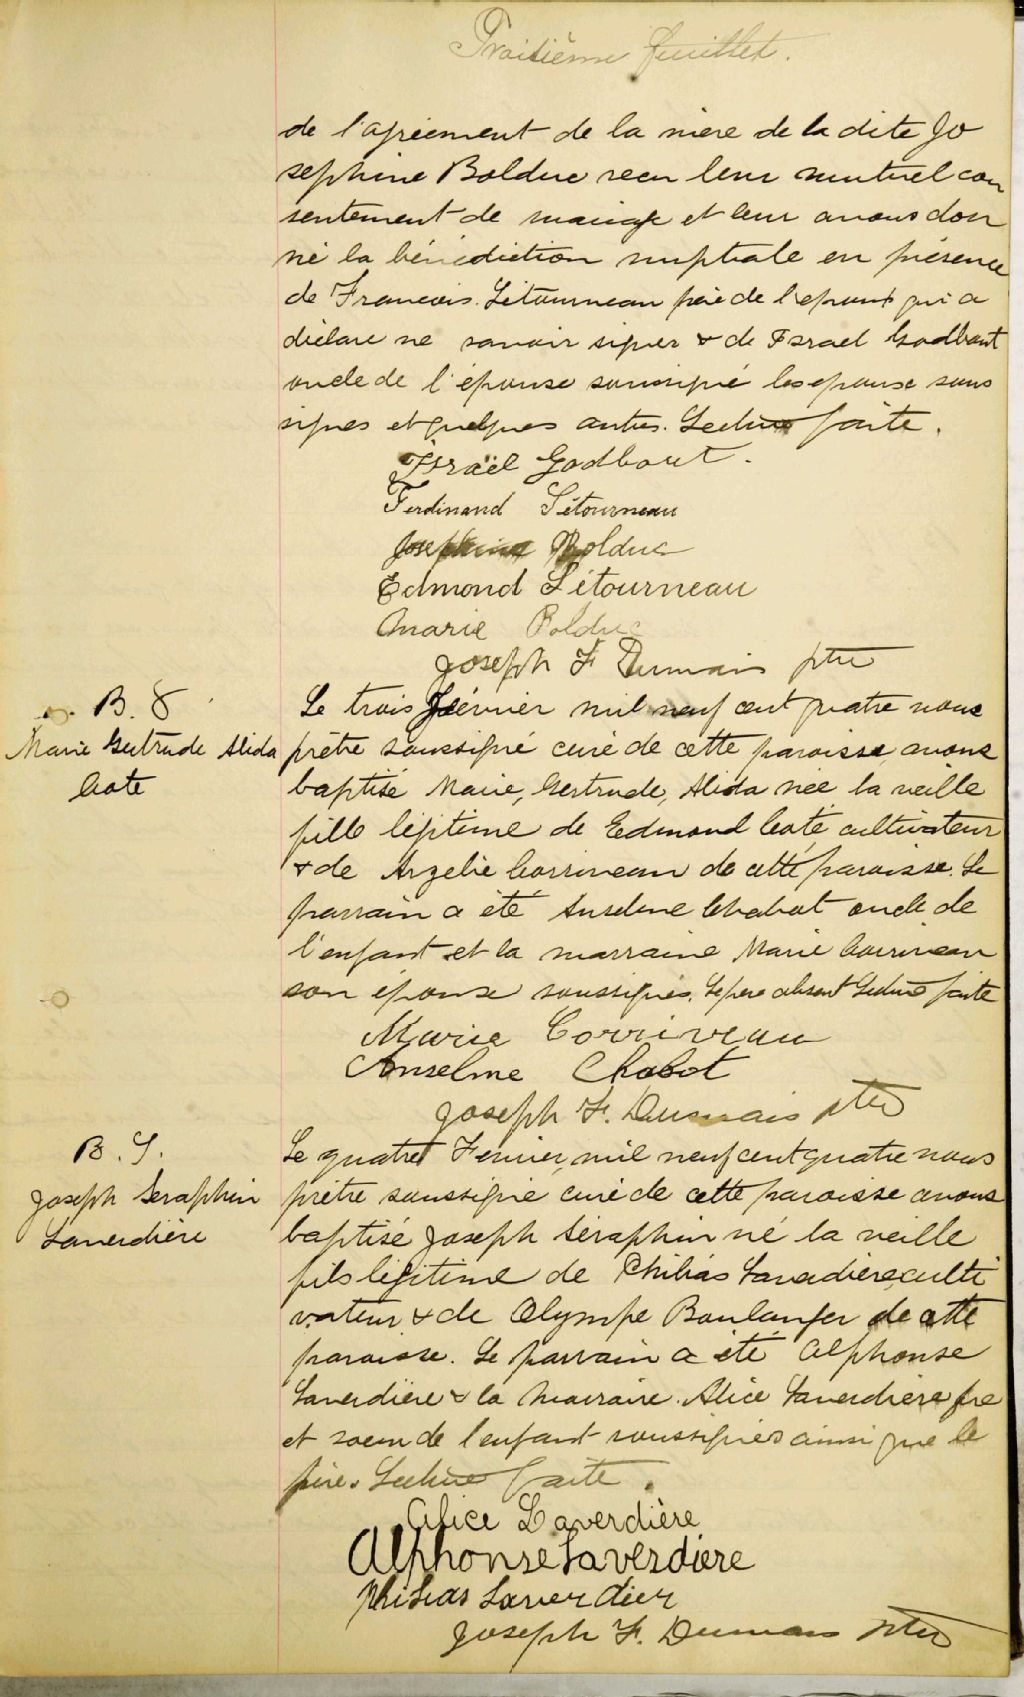 Troisième feuillet.
de l'agréement de la mère de la dite Jo
sephine Bolduc recu leur mutuel con
sentement de mariage et leur avons don
né la bénédiction nuptiale en présence
de Francois Létourneau père de l'epoux qui a
déclare ne savoir signer & de Israel Godbout
oncle de l'épouse soussigné les epouse sous
signes et quelques autres. Lecture faite.
Israël Godbout.
Ferdinand Létourneau
Josephine Bolduc
Edmond Létourneau
Marie Bolduc
Joseph F Dumais ptre
B. 8
Marie Gertrude Alida
Coté
Le trois Février mil neuf cent quatre nous
prêtre soussigné curé de cette paroisse, avons
baptisé Marie, Gertrude, Alida née la veille
fille légitime de Edmond Coté, cultivateur
& de Arzelie Corriveau de cette paroisse. Le
parrain a été Anselme Chabot oncle de
l'enfant et la marraine Marie Corriveau
son épouse soussignés. Le père absent Lecture faite
Marie Corriveau
Anselme Chabot
Joseph F. Dumais ptre
B. 9.
Joseph Seraphin
Laverdière
Le quatre Fevrier, mil neuf cent quatre nous
prêtre soussigné curé de cette paroisse avons
baptisé Joseph Séraphin né la veille
fils légitime de Philias Laverdière, culti
vateur & de Olympe Boulanger de cette
paroisse. Le parrain a été Alphonse
Laverdière & la marraine Alice Laverdière fre
et soeur de l'enfant soussignés ainsi que le
père. Lecture faite.
Alice Laverdière
Alphonse Laverdière
Philias Laverdier
Joseph F. Dumais ptre